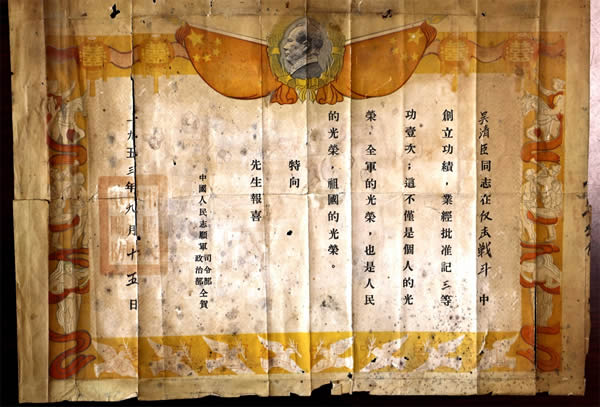 吴清臣同志在反击战斗中
創立功績，業經批准記三等
功壹次；這不僅是個人的光
榮，全軍的光榮，也是人民
的光榮，祖國的光榮。
特向
先生報喜
中國人民志願軍 司令部
政治部 仝賀
一九五三年九月十五日